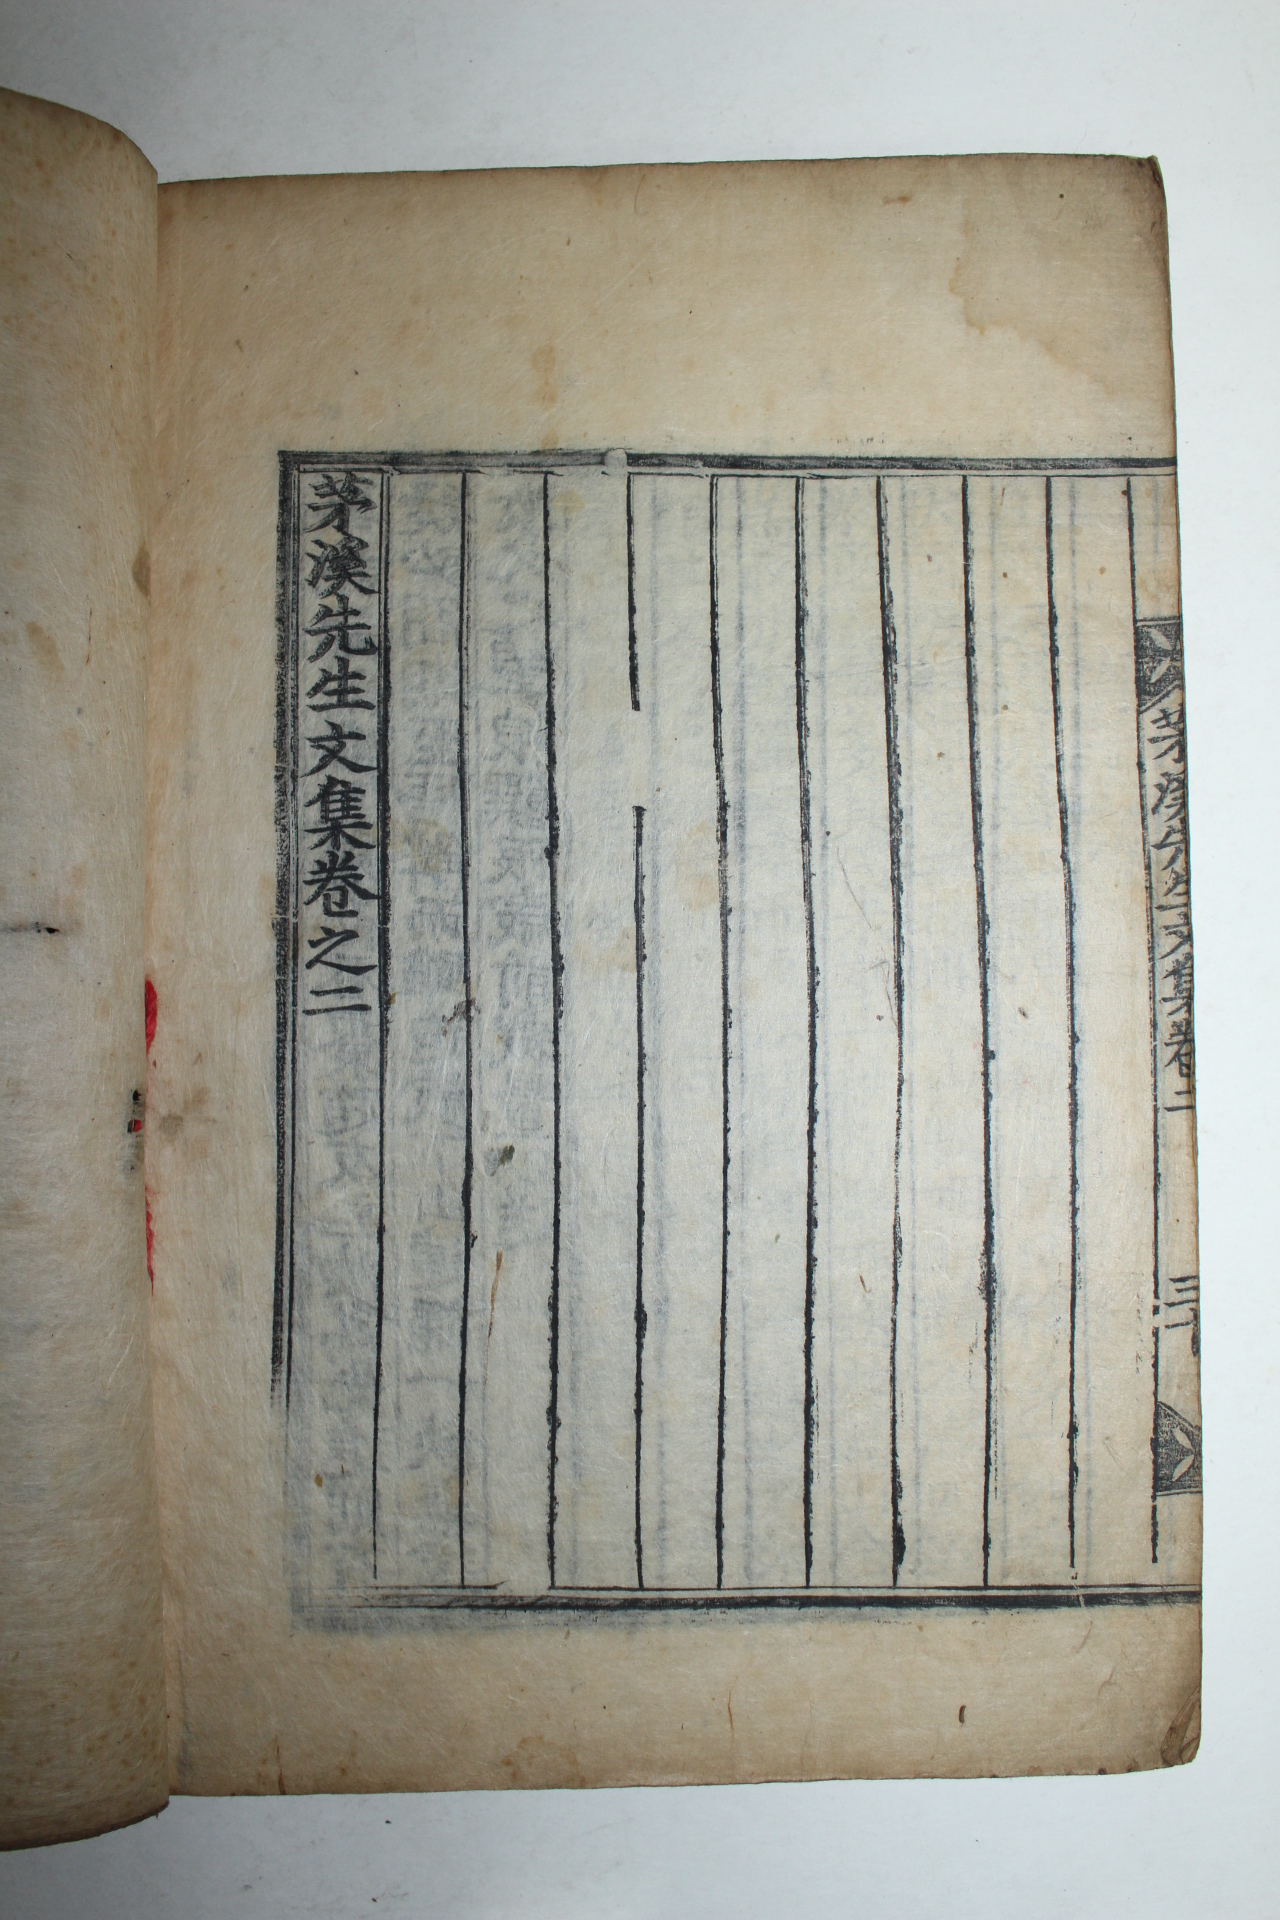 茅溪先生文集卷二
茅溪先生文集卷之二